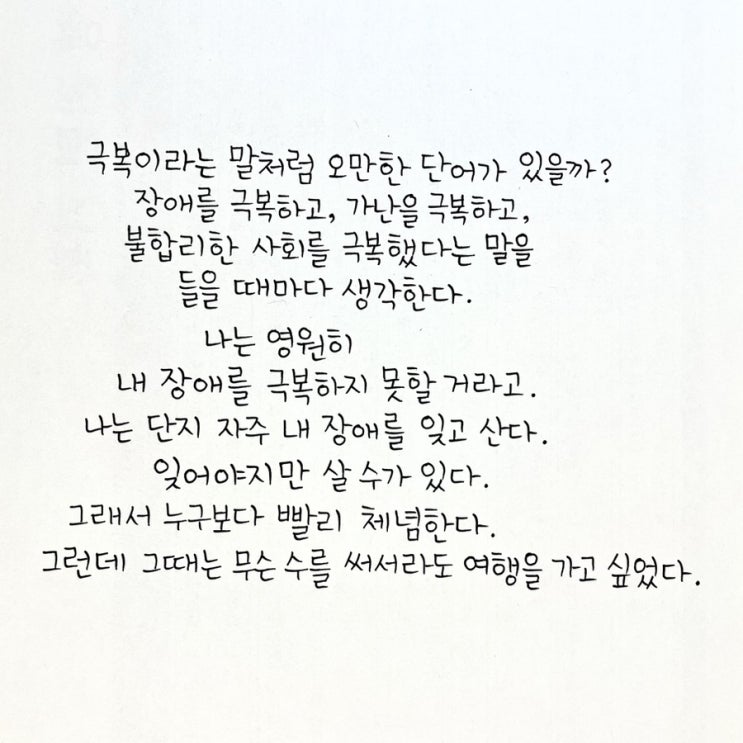 극복이라는 말처럼 오만한 단어가 있을까?
장애를 극복하고, 가난을 극복하고,
불합리한 사회를 극복했다는 말을
들을 때마다 생각한다.
나는 영원히
내 장애를 극복하지 못할 거라고.
나는 단지 자주 내 장애를 잊고 산다.
잊어야지만 살 수가 있다.
그래서 누구보다 빨리 체념한다.
그런데 그때는 무슨 수를 써서라도 여행을 가고 싶었다.